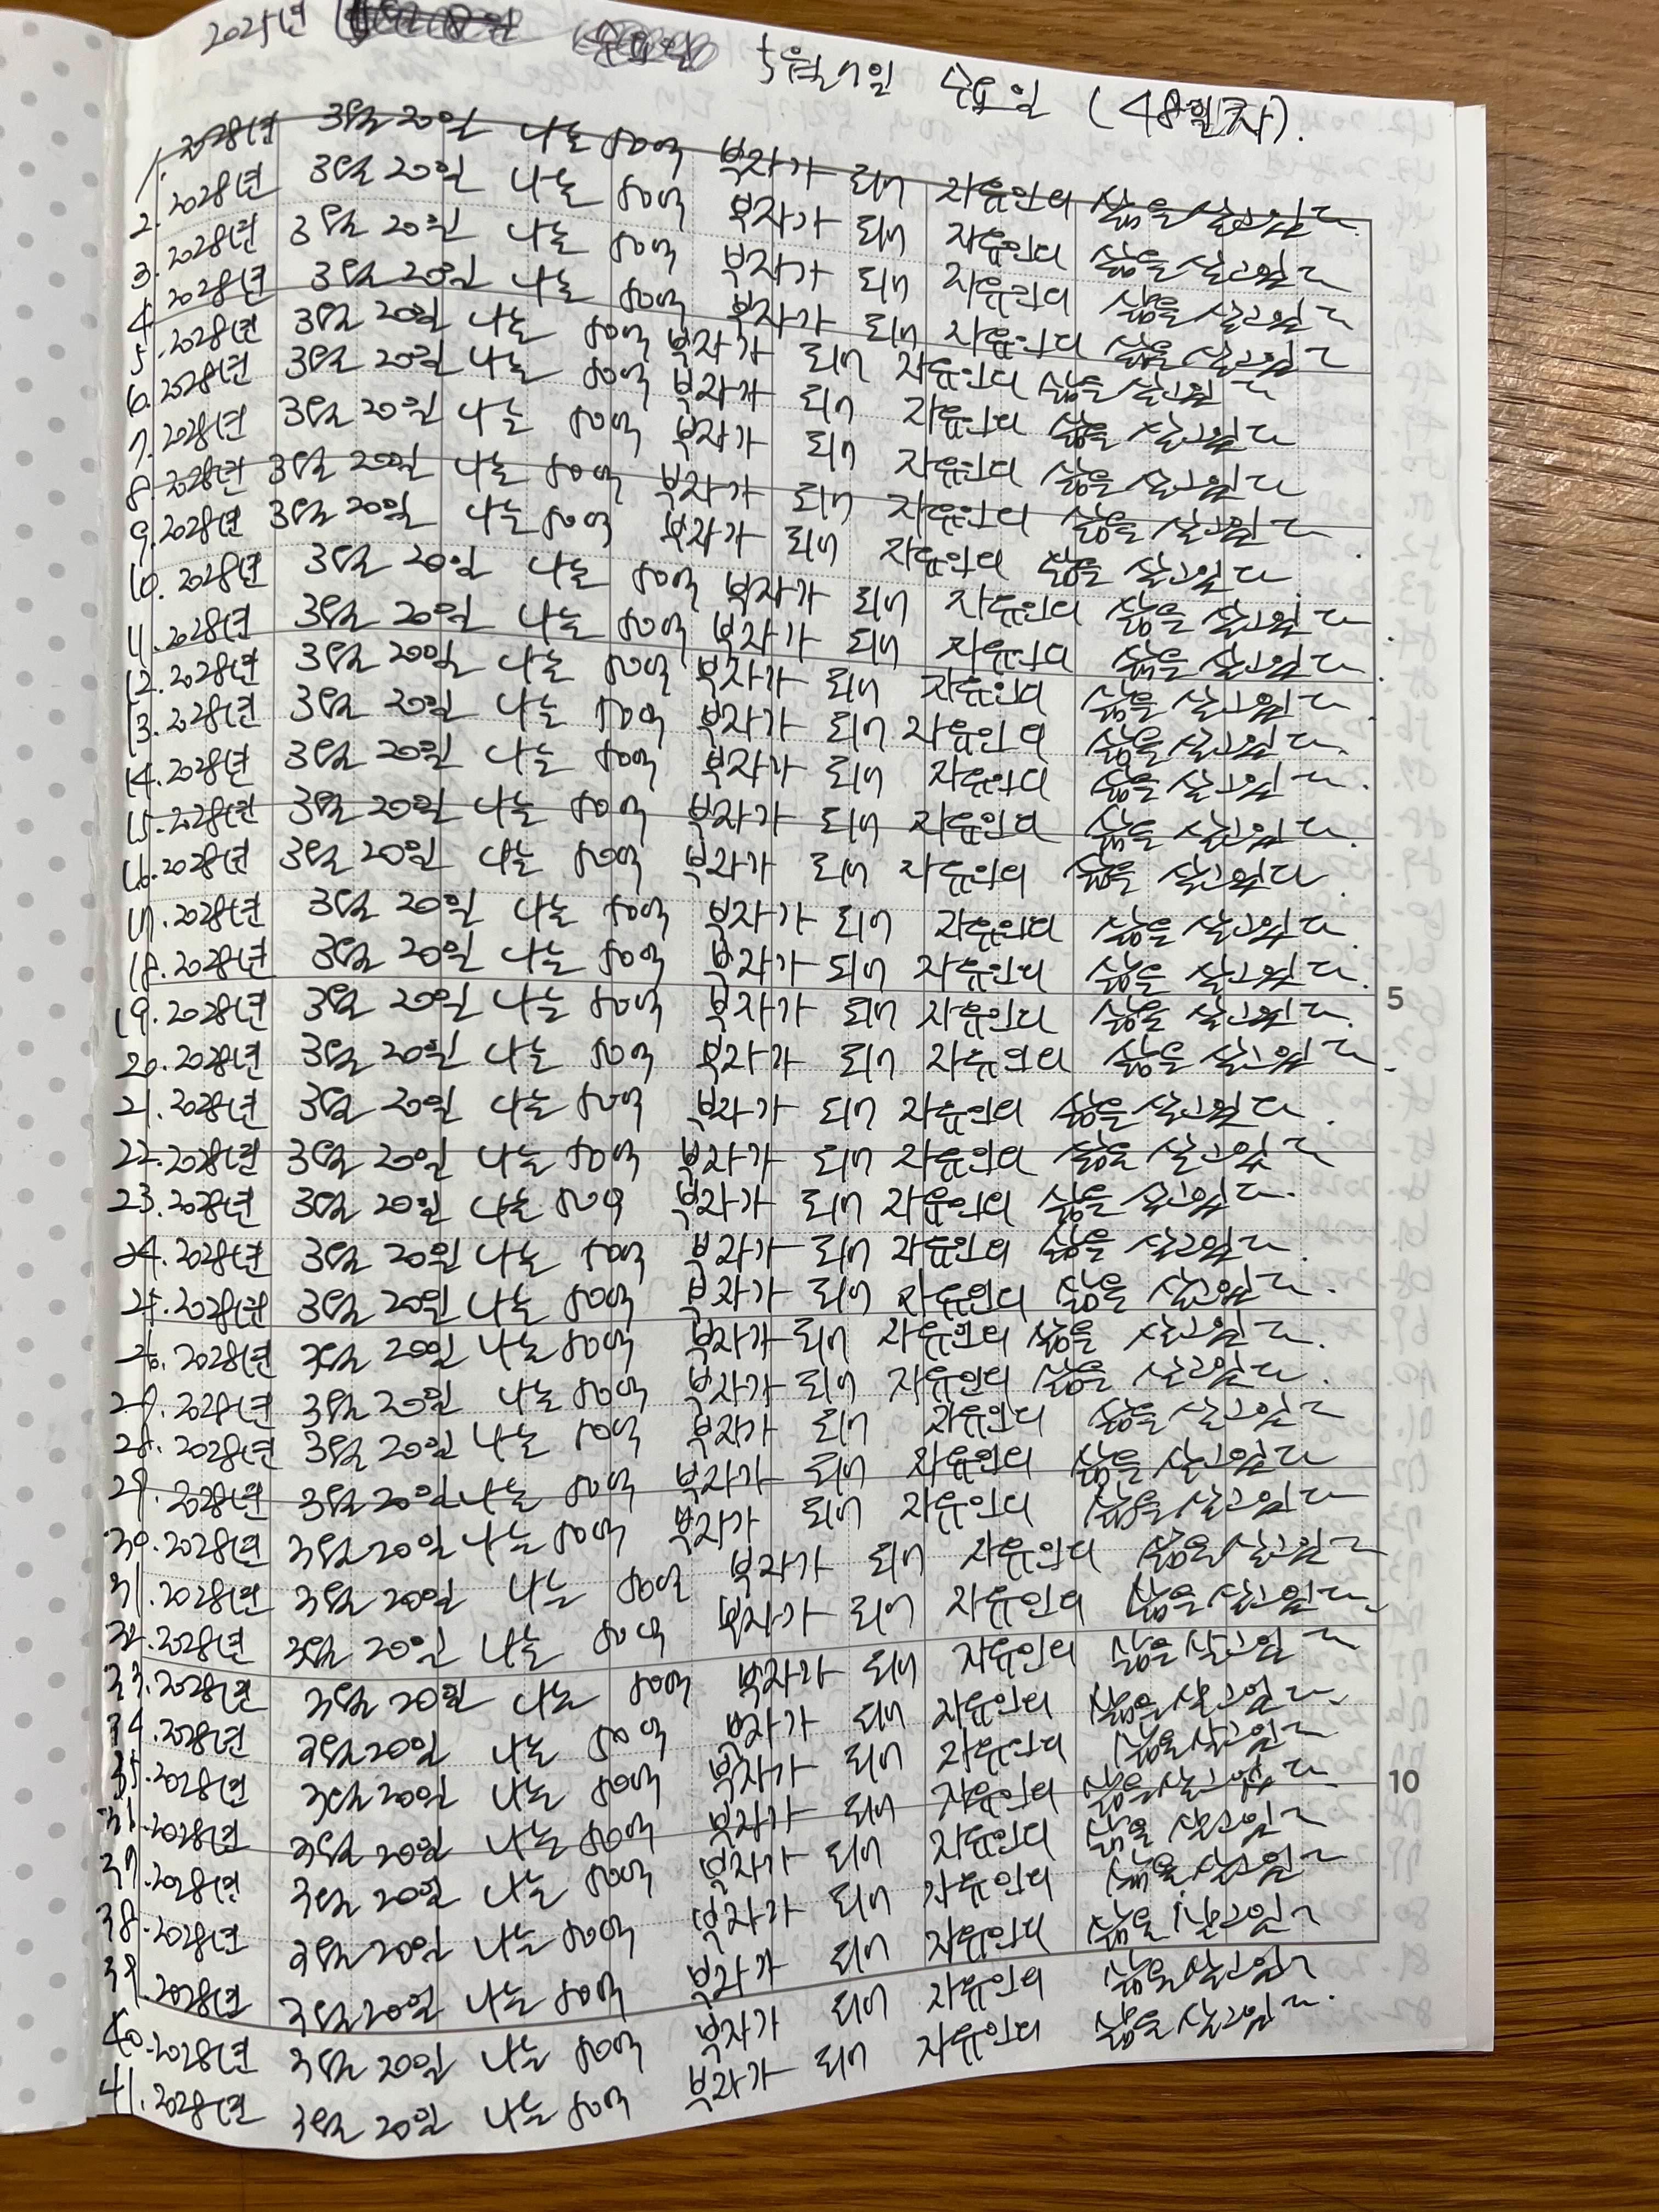 2025년 5월 7일 수요일 (48일차).
1. 2028년 3월 20일 나는 50억 부자가 되어 자유인의 삶을 살고있다.
2. 2028년 3월 20일 나는 50억 부자가 되어 자유인의 삶을 살고있다
3. 2028년 3월 20일 나는 50억 부자가 되어 자유인의 삶을 살고있다
4. 2028년 3월 20일 나는 50억 부자가 되어 자유인의 삶을 살고있다
5. 2028년 3월 20일 나는 50억 부자가 되어 자유인의 삶을 살고있다
6. 2028년 3월 20일 나는 50억 부자가 되어 자유인의 삶을 살고있다
7. 2028년 3월 20일 나는 50억 부자가 되어 자유인의 삶을 살고있다
8. 2028년 3월 20일 나는 50억 부자가 되어 자유인의 삶을 살고있다.
9. 2028년 3월 20일 나는 50억 부자가 되어 자유인의 삶을 살고있다.
10. 2028년 3월 20일 나는 50억 부자가 되어 자유인의 삶을 살고있다.
11. 2028년 3월 20일 나는 50억 부자가 되어 자유인의 삶을 살고있다.
12. 2028년 3월 20일 나는 50억 부자가 되어 자유인의 삶을 살고있다.
13. 2028년 3월 20일 나는 50억 부자가 되어 자유인의 삶을 살고있다.
14. 2028년 3월 20일 나는 50억 부자가 되어 자유인의 삶을 살고있다.
15. 2028년 3월 20일 나는 50억 부자가 되어 자유인의 삶을 살고있다.
16. 2028년 3월 20일 나는 50억 부자가 되어 자유인의 삶을 살고있다.
17. 2028년 3월 20일 나는 50억 부자가 되어 자유인의 삶을 살고있다.
18. 2028년 3월 20일 나는 50억 부자가 되어 자유인의 삶을 살고있다.
19. 2028년 3월 20일 나는 50억 부자가 되어 자유인의 삶을 살고있다.
5
20. 2028년 3월 20일 나는 50억 부자가 되어 자유인의 삶을 살고있다.
21. 2028년 3월 20일 나는 50억 부자가 되어 자유인의 삶을 살고있다.
22. 2028년 3월 20일 나는 50억 부자가 되어 자유인의 삶을 살고있다
23. 2028년 3월 20일 나는 50억 부자가 되어 자유인의 삶을 살고있다.
24. 2028년 3월 20일 나는 50억 부자가 되어 자유인의 삶을 살고있다.
25. 2028년 3월 20일 나는 50억 부자가 되어 자유인의 삶을 살고있다.
26. 2028년 3월 20일 나는 50억 부자가 되어 자유인의 삶을 살고있다.
27. 2028년 3월 20일 나는 50억 부자가 되어 자유인의 삶을 살고있다.
28. 2028년 3월 20일 나는 50억 부자가 되어 자유인의 삶을 살고있다
29. 2028년 3월 20일 나는 50억 부자가 되어 자유인의 삶을 살고있다
30. 2028년 3월 20일 나는 50억 부자가 되어 자유인의 삶을 살고있다
31. 2028년 3월 20일 나는 50억 부자가 되어 자유인의 삶을 살고있다
32. 2028년 3월 20일 나는 50억 부자가 되어 자유인의 삶을 살고있다.
33. 2028년 3월 20일 나는 50억 부자가 되어 자유인의 삶을 살고있다
34. 2028년 3월 20일 나는 50억 부자가 되어 자유인의 삶을 살고있다.
35. 2028년 3월 20일 나는 50억 부자가 되어 자유인의 삶을 살고있다
36. 2028년 3월 20일 나는 50억 부자가 되어 자유인의 삶을 살고있다
10
37. 2028년 3월 20일 나는 50억 부자가 되어 자유인의 삶을 살고있다
38. 2028년 3월 20일 나는 50억 부자가 되어 자유인의 삶을 살고있다
39. 2028년 3월 20일 나는 50억 부자가 되어 자유인의 삶을 살고있다
40. 2028년 3월 20일 나는 50억 부자가 되어 자유인의 삶을 살고있다
41. 2028년 3월 20일 나는 50억 부자가 되어 자유인의 삶을 살고있다.